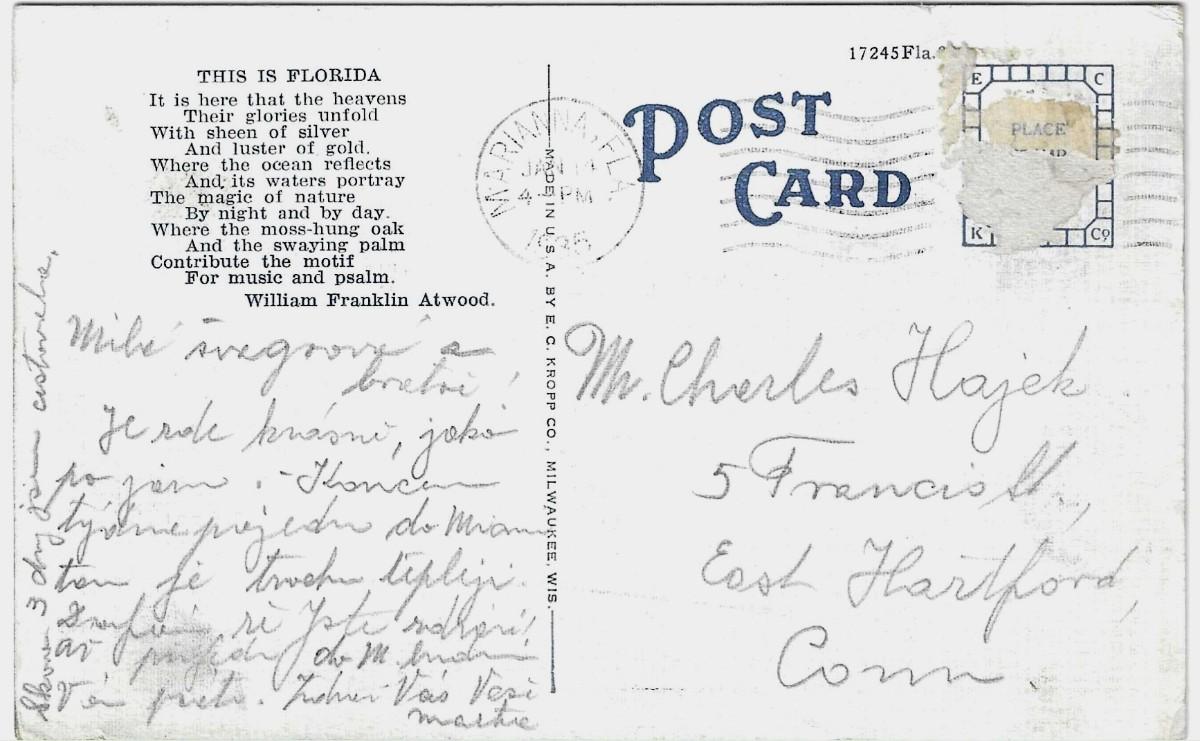 THIS IS FLORIDA
It is here that the heavens
Their glories unfold
With sheen of silver
And luster of gold.
Where the ocean reflects
And its waters portray
The magic of nature
By night and by day.
Where the moss-hung oak
And the swaying palm
Contribute the motif
For music and psalm.
William Franklin Atwood.
17245 Fla.
POST
CARD
E C
PLACE
K Co
MARIANNA, FLA.
JAN 14
4 PM
MADE IN U.S.A. BY E. C. KROPP CO., MILWAUKEE, WIS.
Milé švagrové a
bratři!
Je zde krásně, jako
po jaru. - Koncem
týdne pojedu do Miami
tam je trochu tepleji.
že jste zdrávi!
až pojedu do M. budu
Vám psáti. Zdraví Vás Vaši
3 dny jsem cestovala.
Mr. Charles Hajek
5 Francis St.,
East Hartford,
Conn